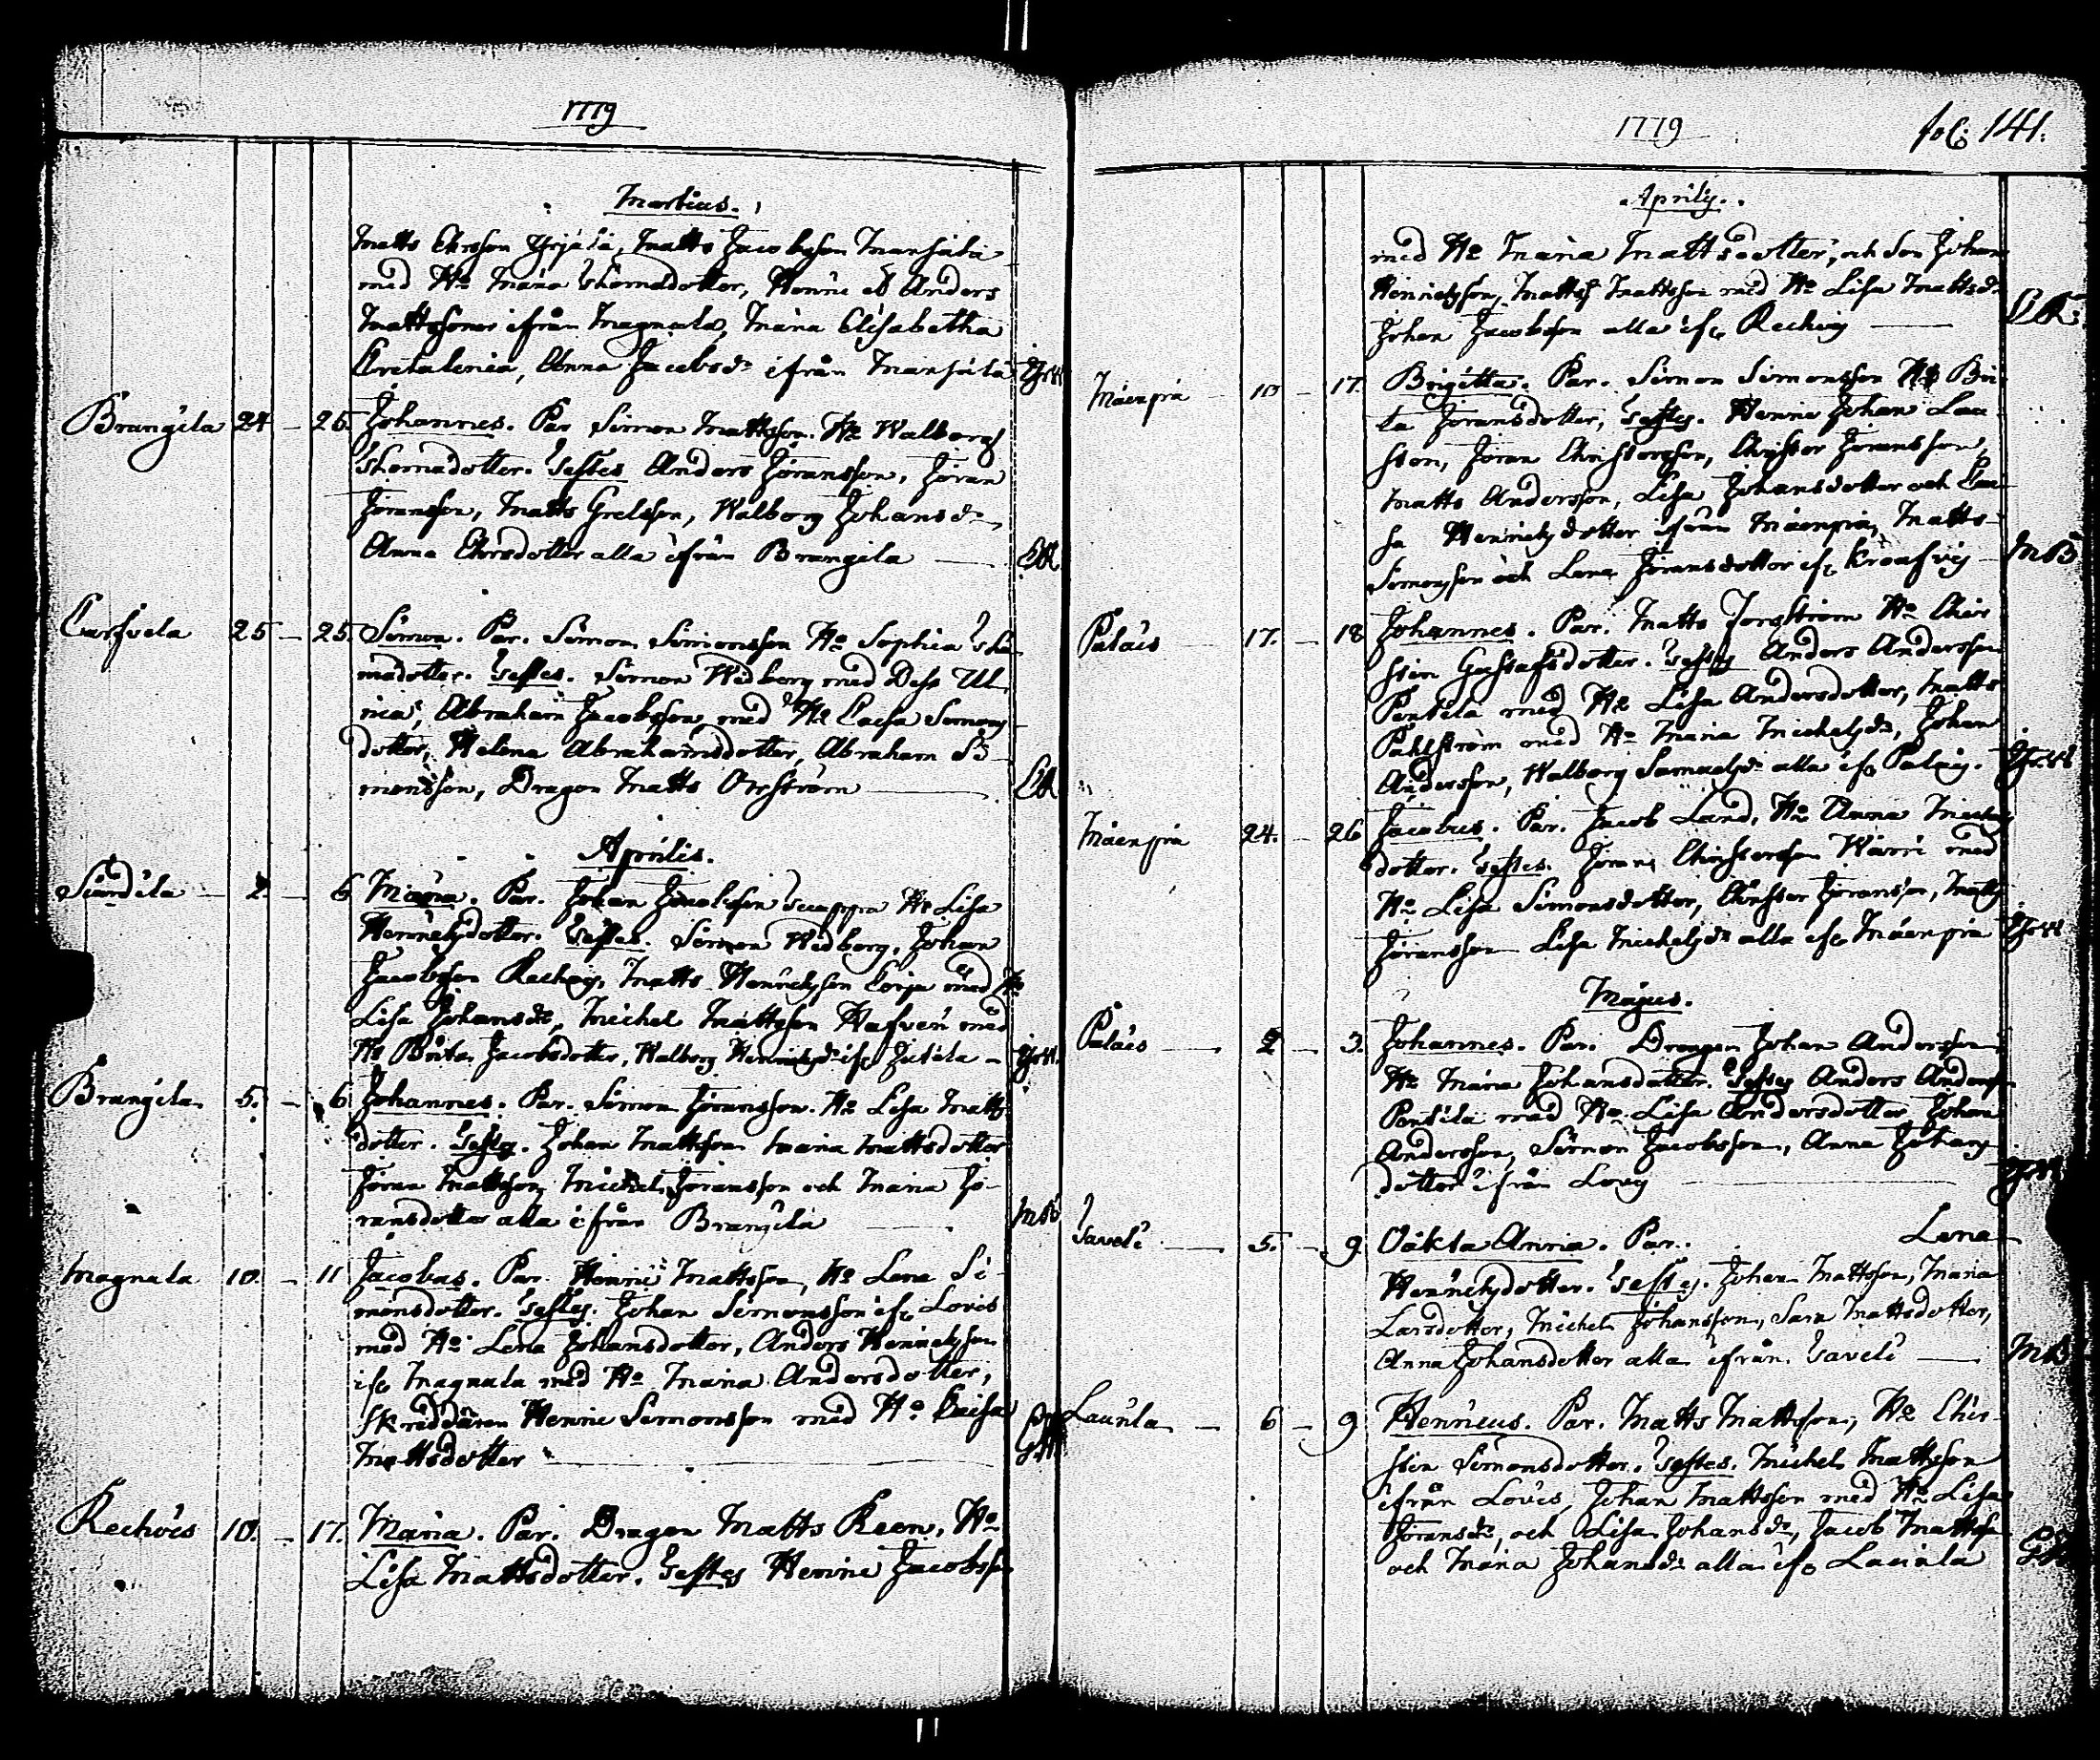 1779
Martius.
Matts Ersson Yrjälä, Matts Jacobsson Mansjala
med Ho Maria Thomædotter, Henric & Anders
Mattssöner ifrån Magnula, Maria Elisabetha
Aretalenia, Anna Jacobsdr ifrån Mansjala
Brangila 24 – 25. Johannes. Par Simon Mattsson. Ho Walborg
Thomædotter. Testes Anders Jöransson, Jöran
Jöransson, Matts Grelsson, Walborg Johansdr,
Anna Ersdotter alla ifrån Brangila
25 – 25. Simon. Par. Simon Simonsson Ho Sophia Tho-
mædotter. Testes. Simon Widberg med Dess Ul-
rica, Abraham Jacobsson med Ho Caisa Simons
dotter, Helena Abrahamsdotter, Abraham Si-
monsson, Dragon Matts Orrström
Aprilis.
2. – 6 Maria. Par. Johan Jacobsson Ho Lisa
Henricsdotter. Testes. Simon Widberg, Johan
Jacobsson Rechois, Matts Henricsson med Ho
Lisa Johansdr, Michel Mattsson med
Ho Brita Jacobsdotter, Walborg Henricsdr ifr
Brangila 5. – 6 Johannes. Par. Simon Jöransson. Ho Lisa Matts
dotter. Testes. Johan Mattsson Maria Mattsdotter
Jöran Mattsson, Michel Jöransson och Maria Jö-
ransdotter alla ifrån Brangila
MB
Magnula 10. – 11 Jacobus. Par. Henric Mattsson, Ho Lena Si-
monsdotter. Testes. Johan Simonsson ifr Lovis
med Ho Lena Johansdotter, Anders Henricsson
ifr Magnula med Ho Maria Andersdotter,
Skräddaren Henric Simonsson med Ho Caisa
Mattsdotter
Rechois 10. – 17. Maria. Par. Dragon Matts Reen, Ho
Lisa Mattsdotter. Testes Henric Jacobsson
1779
fol: 141.
Aprilis.
med Ho Maria Mattsdotter, och Son Johan
Henricsson, Matts Mattsson med Ho Lisa Mattsdr
Johan Jacobsson alla ifr Rechois
Mäenpiä 10 – 17. Brigitta. Par. Simon Simonsson Ho Bri-
ta Jöransdotter, Testes. Henric Johan
Jöran Christersson, Christer Jöransson,
Matts Andersson, Lisa Johansdotter och Cai-
sa Henricsdotter ifrån Mäenpiä, Matts
Simonsson och Lena Jöransdotter ifr
MB
Palais 17. – 18 Johannes. Par. Matts Ho Chir-
stin Gustafsdotter. Testes Anders Andersson
Pentila med Ho Lisa Andersdotter, Matts
Pahlström med Ho Maria Michelsdr, Johan
Andersson, Walborg Samuelsdr alla ifr Palais.
Mäenpiä 24. – 26 Jacobus. Par. Jacob Land, Ho Anna Michels
dotter. Testes. Jöran Christersson med
Ho Lisa Simonsdotter, Christer Jöransson, Matts
Jöransson Lisa Michelsdr alla ifr Mäenpiä
Majus.
Palais 2 – 3. Johannes. Par. Dragon Johan Andersson
Ho Maria Johansdotter. Testes Anders Andersson
Pentila med Ho Lisa Andersdotter, Johan
Andersson, Simon Jacobsson, Anna Johans
dotter ifrån Lovis
Taveli 5. – 9 Oäkta Anna. Par. Lena
Henricsdotter. Testes. Johan Mattsson, Maria
Larsdotter, Michel Johansson, Sara Mattsdotter,
Anna Johansdotter alla ifrån Taveli
MB
Launla – 6 – 9 Henricus. Par. Matts Mattsson, Ho Chir-
stin Simonsdotter. Testes. Michel Mattsson
ifrån Lovis, Johan Mattsson med Ho Lisa
Jöransdr, och Lisa Johansdr, Jacob Mattsson
och Maria Johansdr alla ifr Launla